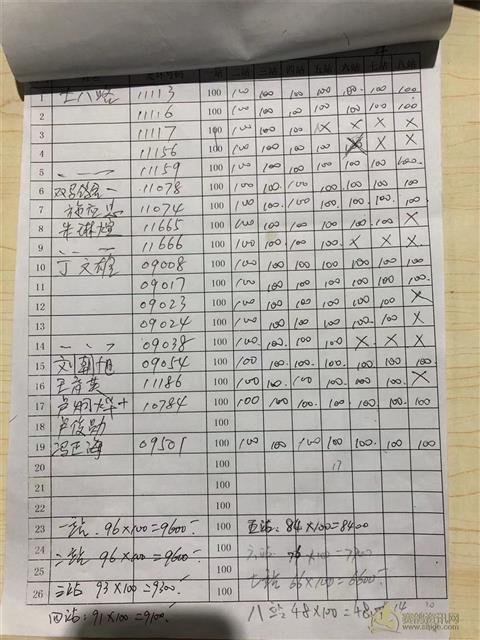 一站 二站 三站 四站 五站 六站 七站 八站
1 11113 100 100 100 100 100 100 100 100
2 11116 100 100 100 100 100 100 100 100
3 11117 100 100 100 100 X X X X
4 11156 100 100 100 100 100 X X
5 11159 100 100 100 100 100 100 100 100
6 11078 100 100 100 100 100 100 100 100
7 11074 100 100 100 100 100 100 100 100
8 朱琳煊 11665 100 100 100 100 100 100 100 X
9 11666 100 100 100 100 X X X
10 丁文雄 09008 100 100 100 100 100 100 100 100
11 09017 100 100 100 100 100 100 100 100
12 09023 100 100 100 100 100 100 100 X
13 09024 100 100 100 100 100 100 100 100
14 09038 100 100 100 100 100 X X X
15 刘朝旭 09054 100 100 100 100 100 100 100 100
16 11186 100 100 100 100 100 100 100 X
17 10784 100 100 100 100 100 100 100 100
18 卢俊勋 100
19 冯正海 09501 100 100 100 100 100 100 100 100
20 100
21 100
22 100
23 一站. 96×100=9600 100 五站: 84×100=8400
24 二站 96×100=9600 100 六站 76×100=7600
25 100 七站 66×100=6600
26 三站 93×100=9300 100
四站: 91×100=9100 八站: 48×100=4800
赛鸽资讯网
www.saige.com